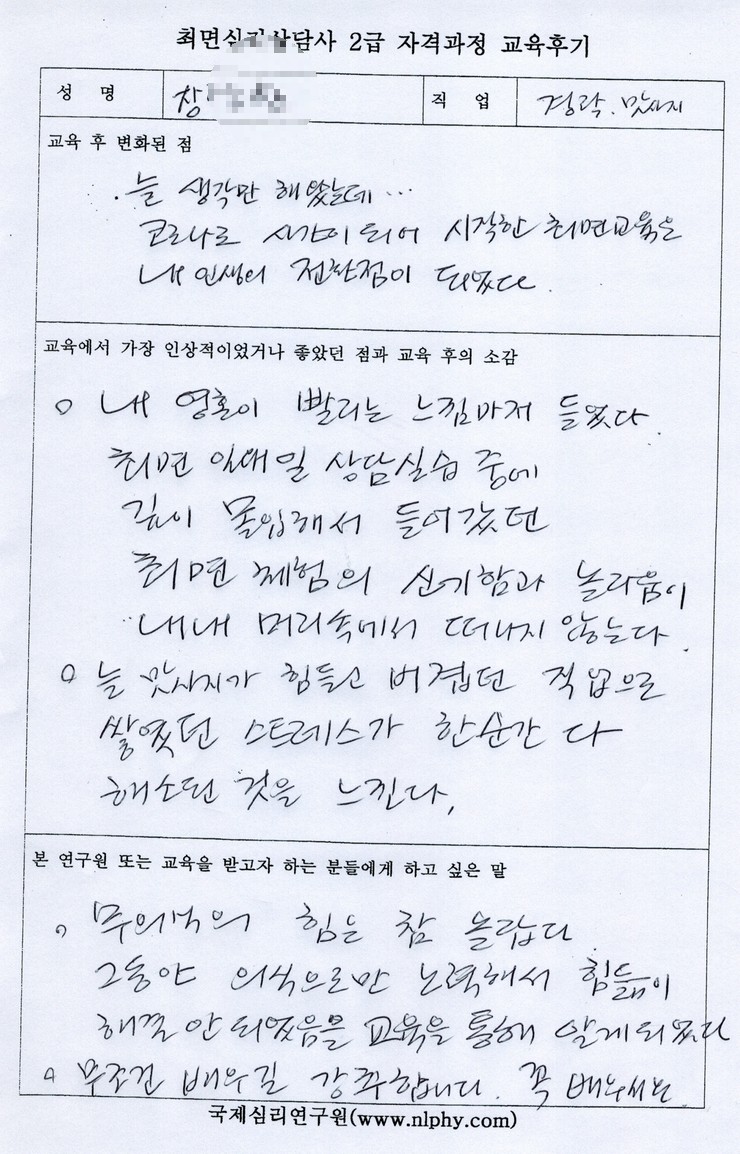 최면심리상담사 2급 자격과정 교육후기
성 명 창 직 업 경락.맛사지
교육 후 변화된 점
. 늘 생각만 해왔는데 ...
코로나로 시간이 되어 시작한 최면교육은
내 인생의 전환점이 되었다.
교육에서 가장 인상적이었거나 좋았던 점과 교육 후의 소감
o 내 영혼이 빨리는 느낌마저 들었다.
최면 일대일 상담실습 중에
깊이 몰입해서 들어갔던
최면 체험의 신기함과 놀라움이
내내 머리속에서 떠나지 않는다.
o 늘 맛사지가 힘들고 버겹던 직업으로
쌓였던 스트레스가 한순간 다
해소된 것을 느낀다.
본 연구원 또는 교육을 받고자 하는 분들에게 하고 싶은 말
o 무의식의 힘은 참 놀랍다
그동안 의식으로만 노력해서 힘들
해결 안 되었음을 교육을 통해 알게되었다
o 무조건 배우길 강추합니다. 꼭
국제심리연구원(www.nlphy.com)